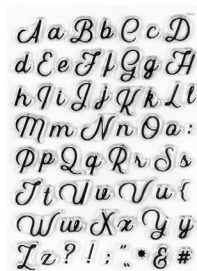 A a B b C c D
d E e F f G g H
h I i J j K k L l
M m N n O o :
P p Q q R r S s
T t U u V v {
W w X x Y y
Z z ? ! ; " * & #